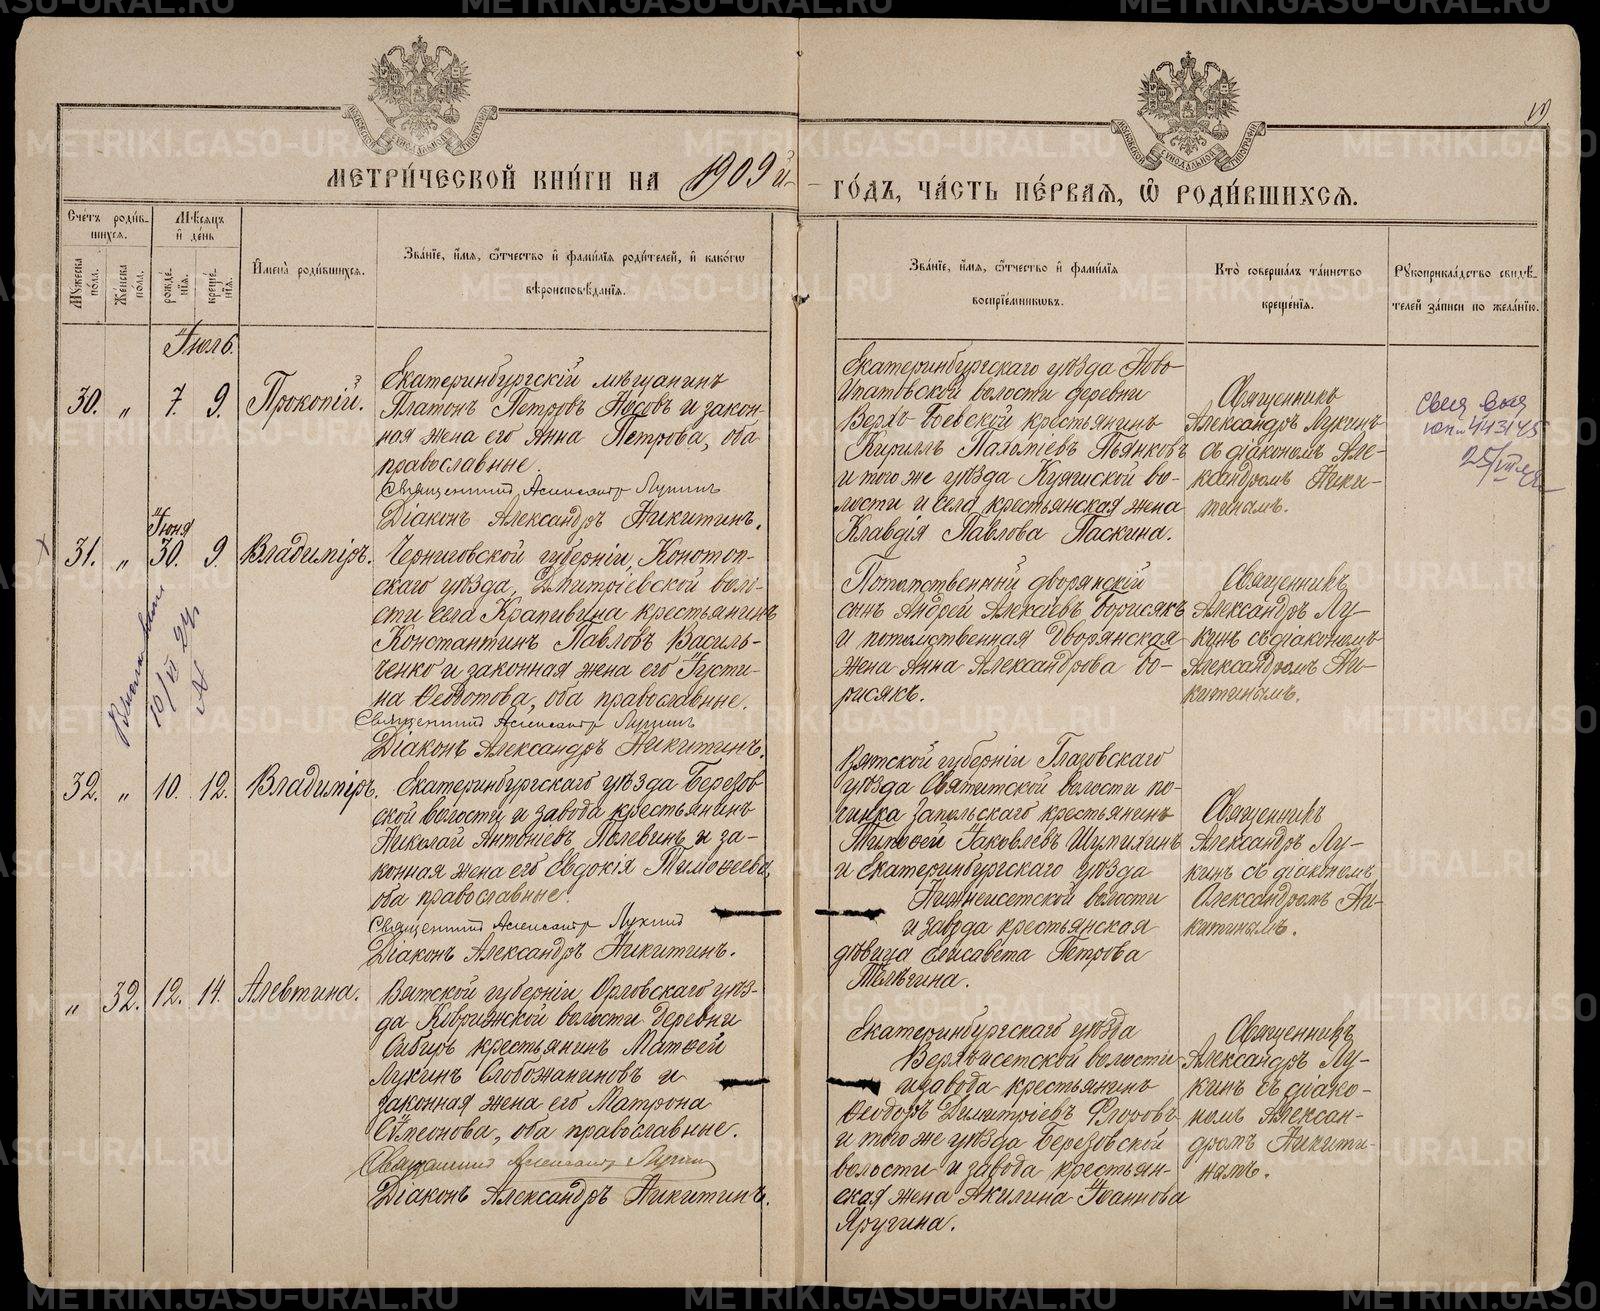 МЕТРИ́ЧЕСКОЙ КНИ́ГИ НА 1909 й
ГО́ДЪ, ЧА́СТЬ ПЕ́РВАѦ, Ѽ РОДИ́ВШИХСѦ.
Сче́тъ роди́в-
шихся.
Мѣ́сяцъ
и҆ де́нь
Мꙋ́жеска по́ла.
Же́нска по́ла.
рожде́нїѧ.
креще́нїѧ.
И҆мена̀ роди́вшихся.
Зва́нїе, и҆́мя, ѻ҆́тчество и҆ фами́лїя роди́телей, и҆ како́гѡ
вѣроисповѣ́данїѧ.
Зва́нїе, и҆́мя, ѻ҆́тчество и҆ фами́лїя
воспрїе́мникѡвъ.
Кто̀ соверша́лъ та́инство
креще́нїѧ.
Рꙋкоприкла́дство свидѣ́-
телей за́писи по жела́нїю.
Іюль.
30. „ 7. 9. Прокопій.
Екатеринбургскій мѣщанинъ
Платонъ Петровъ Носовъ и закон-
ная жена его Анна Петрова, оба
православные.
Священникъ Александръ Лукинъ
Діаконъ Александръ Никитинъ.
Екатеринбургскаго уѣзда Ново-
Ипатовской волости деревни
Верхъ-Боевской крестьянинъ
Кириллъ Пьянковъ
и того же уѣзда Куяшской во-
лости и села крестьянская жена
Клавдія Павлова Паскина.
Священникъ
Александръ Лукинъ
съ діакономъ Але-
ксандромъ Ники-
тинымъ.
Іюня
31. „ 30. 9. Владиміръ.
Черниговской губерніи, Конотоп-
скаго уѣзда, Дмитріевской воло-
сти села Крапивина крестьянинъ
Константинъ Павловъ Василь-
ченко и законная жена его Іусти-
на Ѳедотова, оба православные.
Священникъ Александръ Лукинъ
Діаконъ Александръ Никитинъ.
Потомственный дворянскій
сынъ Андрей Алексіевъ Борисякъ
и потомственная дворянская
жена Анна Александрова Бо-
рисякъ.
Священникъ
Александръ Лу-
кинъ съ діакономъ
Александромъ Ни-
китинымъ.
32. „ 10. 12. Владиміръ.
Екатеринбургскаго уѣзда Березов
ской волости и завода крестьянинъ
Николай Антоніевъ Полевинъ и за-
конная жена его Евдокія Тимоѳеева,
оба православные.
Священникъ Александръ Лукинъ
Діаконъ Александръ Никитинъ.
Вятской губерніи Глазовскаго
уѣзда Святитской волости по-
чинка Запольскаго крестьянинъ
Тимоѳей Іаковлевъ Шумихинъ
и Екатеринбургскаго уѣзда
Нижнеисетской волости
и завода крестьянская
дѣвица Елисавета Петрова
Священникъ
Александръ Лу-
кинъ съ діакономъ
Александромъ Ни-
китинымъ.
„ 32. 12. 14. Алевтина.
Вятской губерніи Орловскаго уѣз-
да Коврижской волости деревни
Сибирь крестьянинъ Матѳей
Лукинъ Слобожаниновъ и
законная жена его Матрона
Сѵмеонова, оба православные.
Священникъ Александръ Лукинъ
Діаконъ Александръ Никитинъ.
Екатеринбургскаго уѣзда
Верхъисетской волости
и завода крестьянинъ
Ѳеодоръ Димитріевъ Фроровъ
и того же уѣзда Березовской
волости и завода крестьян-
ская жена Акилина Іоаннова
Яругина.
Священникъ
Александръ Лу-
кинъ съ діако-
номъ Алексан-
дромъ Никити-
нымъ.
METRIKI.GASO-URAL.RU